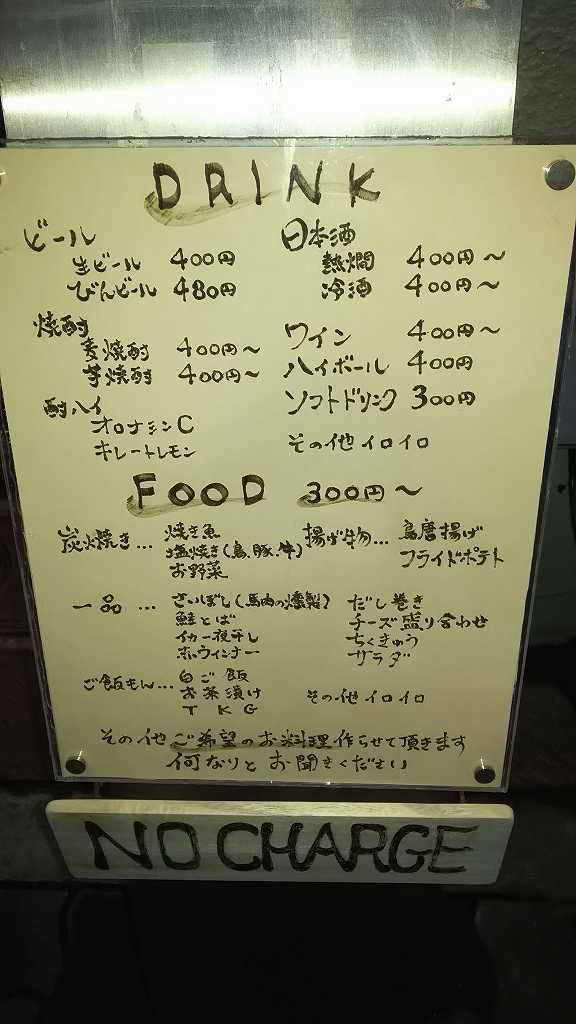 DRINK
ビール
生ビール 400円
びんビール 480円
焼酎
麦焼酎 400円～
芋焼酎 400円～
酎ハイ
オロナミンC
キレートレモン
日本酒
熱燗 400円～
冷酒 400円～
ワイン 400円～
ハイボール 400円
ソフトドリンク 300円
その他イロイロ
FOOD 300円～
炭火焼き… 焼き魚
塩焼き(鳥、豚、牛)
お野菜
揚げ物… 鳥唐揚げ
フライドポテト
一品 … さいぼし(馬肉の燻製)
鮭とば
イカ一夜干し
赤いウィンナー
だし巻き
チーズ盛り合わせ
ちくきゅう
サラダ
ご飯もん… 白ご飯
お茶漬け
TKG
その他イロイロ
その他ご希望のお料理作らせて頂きます
何なりとお聞きください
NO CHARGE